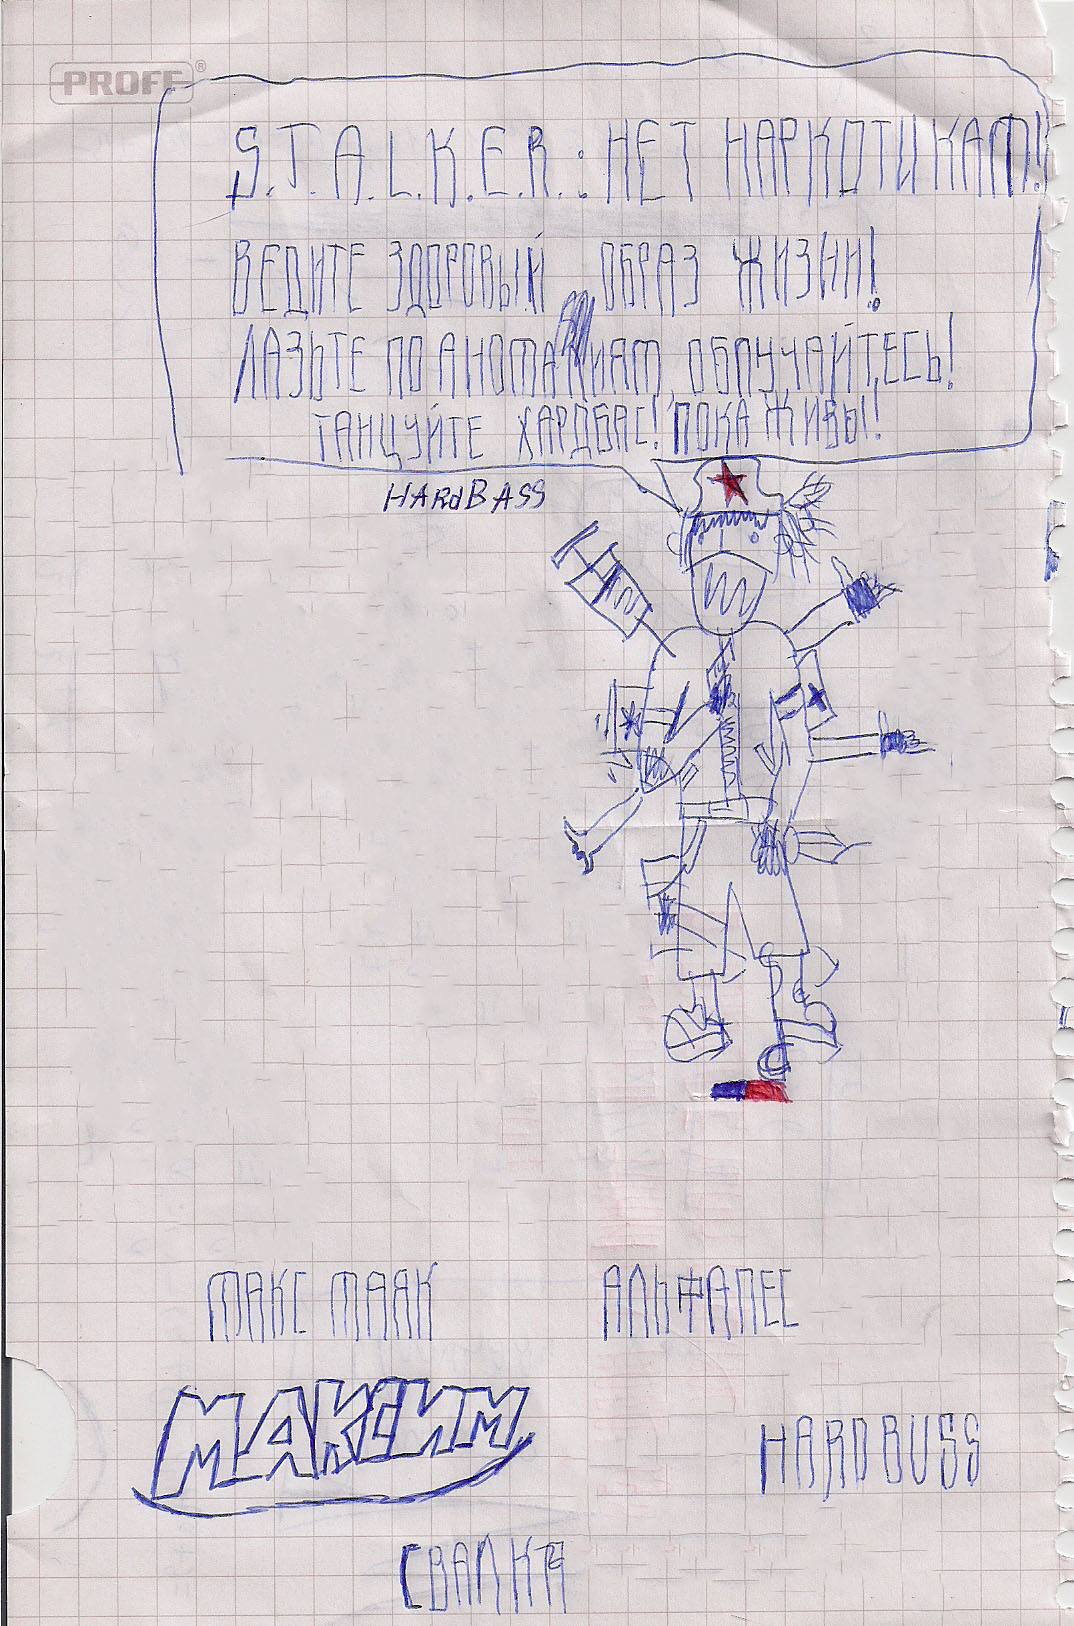 PROFF®
S.T.A.L.K.E.R.: НЕТ НАРКОТИКАМ!
ВЕДИТЕ ЗДОРОВЫЙ ОБРАЗ ЖИЗНИ!
ЛАЗЬТЕ ПО АНОМАЛИЯМ, ОБЛУЧАЙТЕСЬ!
ТАНЦУЙТЕ ХАРДБАС! ПОКА ЖИВЫ!
HARdBASS
МАКС МАЯК
АЛЬФАПЕС
МАКСИМ
HARDBUSS
СВАЛКА